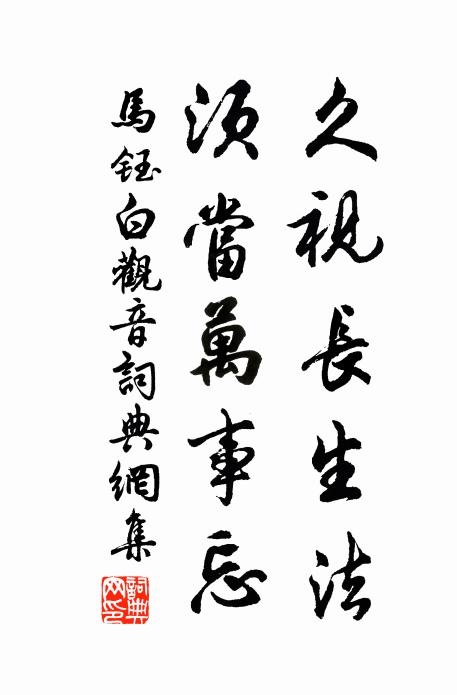 久視長生法
須當萬事忘
馬鈺白觀音詞典網集
詞典網印